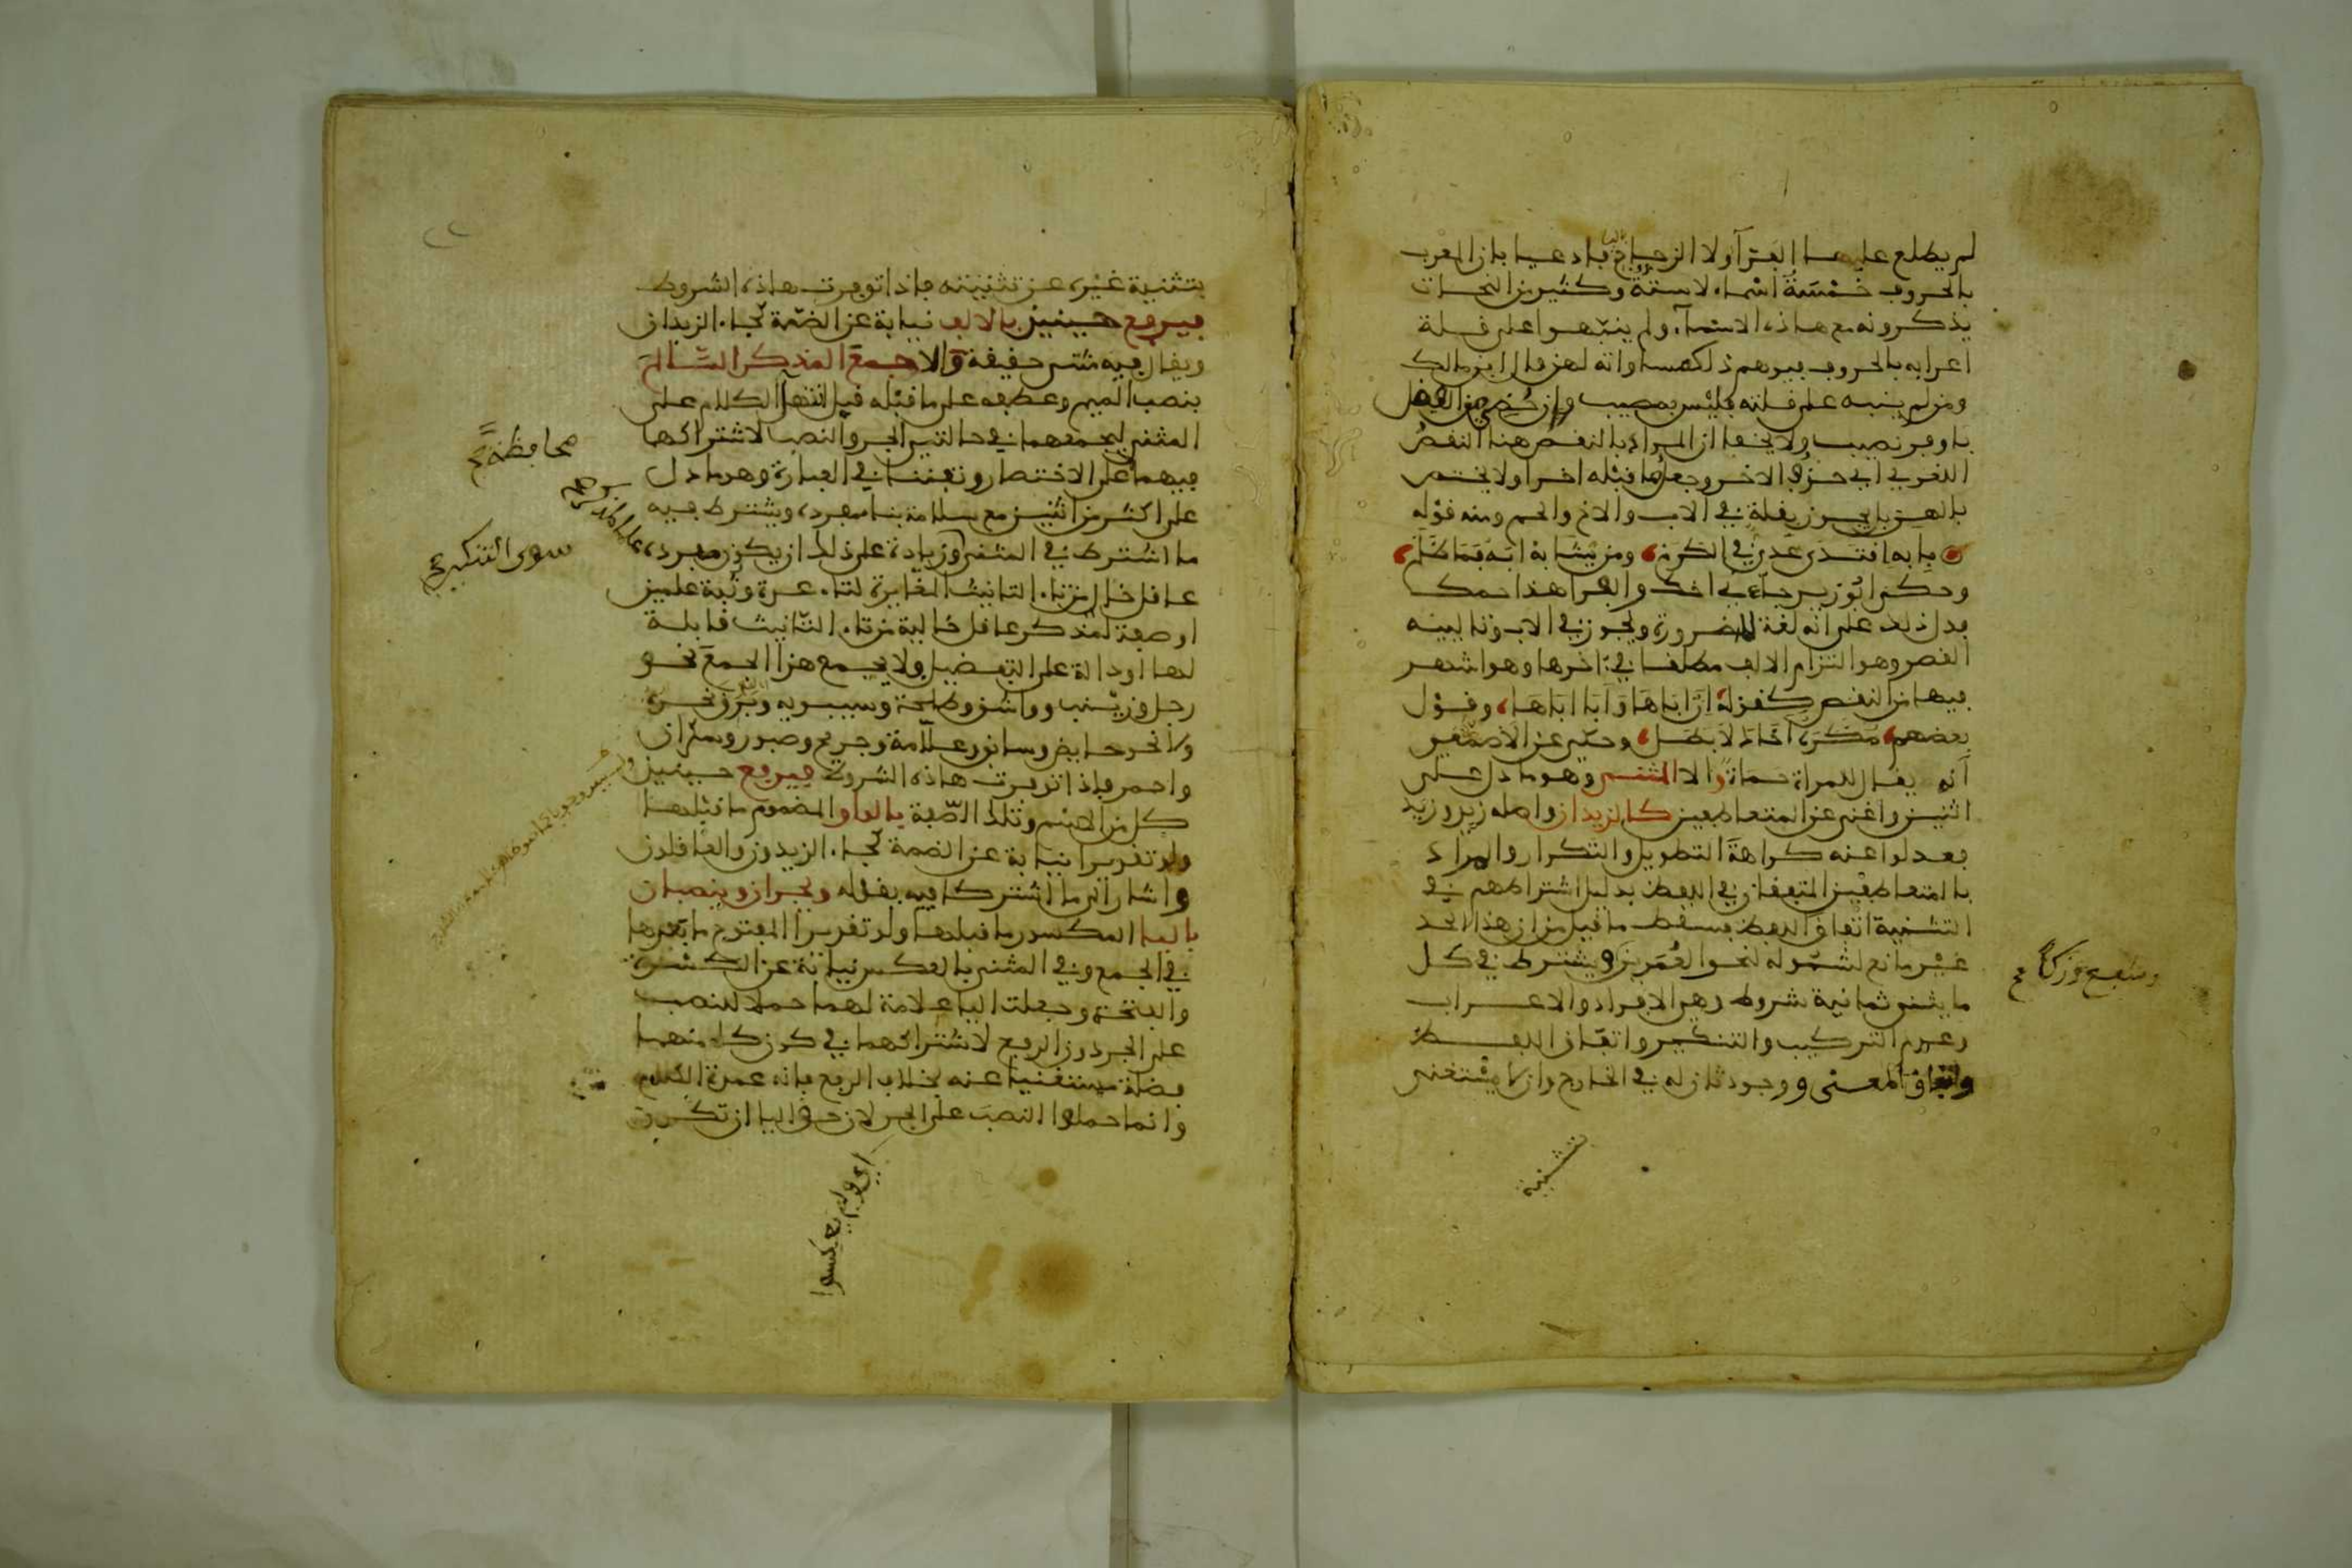 لم يطلع عليها الفرآ ولا الزجاجي فادعيا بان المعرب
بالحروف خمسة اسماء لاستة وكثير من النحات
يذكرونه مع هاذه الاسمآء ولم ينبهوا على فلة
اعرابه بالحروف فيوهم ذلك مساواته لهن فال ابن مالك
ومن لم ينبه على فلته فليس بمصيب وان حظي من الفضل
باوفر نصيب ولا يخفا ان المراد بالنفص هنا النفص
اللغوي اي حذف الاخر وجعل ما فبله اخرا ولا يختص
بالهن بل يجوز بفلة في الاب والاخ والحم ومنه فوله
بابه افتدى عدي في الكرم ومن يشابه ابه فما ظلم
وحكى ابو زيد جاءني اخك والفرا هذا حمك
فدل ذلك على انه لغة لا ضرورة ويجوز في الاب وتالييه
الفصر وهو التزام الالف مطلفا في ءاخرها وهو اشهر
فيها من النفص كفوله ان اباها وابا اباها وفول
بعضهم مكره اخاك لا بطل وحكي عن الاصمعي
انه يفال للمراة حماة والا المثنى وهو ما دل على
اثنين واغنى عن المتعاطفين كالزيدان واصله زيد وزيد
فعدلوا عنه كراهة التطويل والتكرار والمراد
بالمتعاطفين المتفقان في اللفظ بدليل اشتراطهم في
التثنية اتفاق اللفظ فسفط ما فيل من ان هذا الحد
غير مانع لشموله لنحو العمرين ويشترط في كل
وشفع وزكا صح
ما يثنى ثمانية شروط وهي الافراد والاعراب
وعدم التركيب والتنكير واتفاق اللفظ
واتفاق المعنى ووجود ثان له في الخارج وان لا يستغنى
بتثنية
بتثنية غيره عن تثنيته فاذا توفرت هاذه الشروط
فيرفع حينيذ بالالف نيابة عن الضمة كجاء الزيدان
ويفال فيه مثنى حفيفة والا جمع المذكر السالم
بنصب الميم وعطفه على ما فبله فبل انتهآ الكلام على
المثنى ليجمعهما في حالتي الجر والنصب لاشتراكهما
محافظة صح
فيهما على الاختصار وتفننا في العبارة وهو ما دل
على اكثر من اثنين مع سلامة بناء مفرده ويشترط فيه
ما اشترط في المثنى وزيادة على ذلك ان يكون مفرده
سوى التنكير صح
عافل خال من تاء التانيث المغايرة لتاء عدة وثبة علمين
او صفة لمذكر عافل خالية من تاء التانيث فابلة
لها او دالة على التفضيل ولا يجمع هذا الجمع نحو
رجل وزينب وواشق وطلحة وسيبويه وبرق نحره
ولا نحو حايض وسابق وعلامة وجريح وصبور وسكران
واحمر فاذا توفرت هاذه الشروط فيرفع حينيذ
كل من الاسم وتلك الصفة بالواو المضموم ما فبلها
ولو تفديرا نيابة عن الضمة كجاء الزيدون والعافلون
واشار الى ما اشتركا فيه بفوله ويجران وينصبان
باليا المكسور ما فبلها ولو تفديرا المفتوح ما بعدها
في الجمع وفي المثنى بالعكس نيابة عن الكسرة
والفتحة وجعلت اليا علامة لهما حملا للنصب
على الجر دون الرفع لاشتراكهما في كون كل منهما
فضلة مستغنيا عنه بخلاف الرفع فانه عمدة الكلام
وانما حملوا النصب على الجر لان حق اليا ان تكون
اي ولم يعكسوا